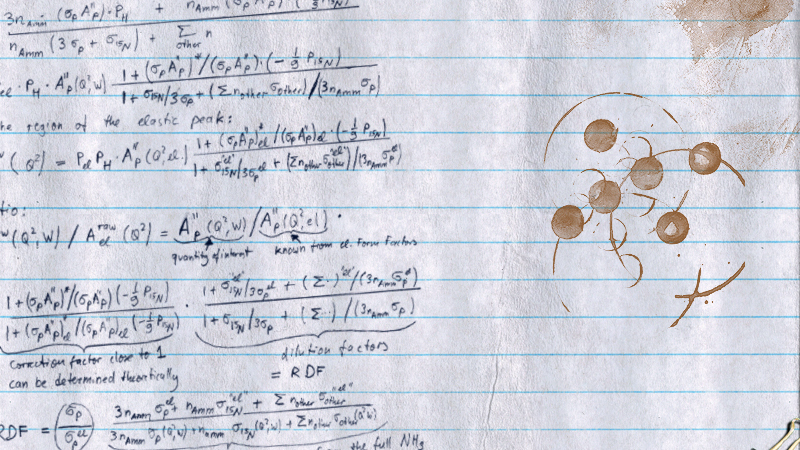 3n_Amm (σ_p A_p'')·P_H + n_Amm
n_Amm (3σ_p + σ_15N) + Σ_other n
· P_H · A_p''(Q²,W) 1 + (σ_p A_p'')*/(σ_p A_p'')·(-1/9 P_15N) / 1 + σ_15N/3σ_p + (Σ n_other σ_other)/(3n_Amm σ_p)
he region of the elastic peak:
(Q²) = P_el P_H · A_p''(Q²,el.) 1 + (σ_p A_p'')*_el/(σ_p A_p'')_el·(-1/9 P_15N) / 1 + σ_15N^"el"/3σ_p^el + (Σ n_other σ_other^"el")/(3n_Amm σ_p^el)
tio:
(Q²,W) / A_el^raw (Q²) = A_p''(Q²,W) / A_p''(Q²,el) ·
quantity of interest known from el. Form Factors
1 + (σ_p A_p'')*/(σ_p A_p'')(-1/9 P_15N) / 1 + (σ_p A_p'')*_el/(σ_p A_p'')_el(-1/9 P_15N) · 1 + σ_15N^"el"/3σ_p^el + (Σ··)^"el"/(3n_Amm σ_p^el) / 1 + σ_15N/3σ_p + (Σ··)/(3n_Amm σ_p)
correction factor close to 1 dilution factors
can be determined theoretically = RDF
RDF = (σ_p/σ_p^el) 3n_Amm σ_p^el + n_Amm σ_15N^"el" + Σ n_other σ_other^"el" / 3n_Amm σ_p(Q²,W) + n_Amm σ_15N(Q²,W) + Σ n_other σ_other(Q²,W)
the full NH₃